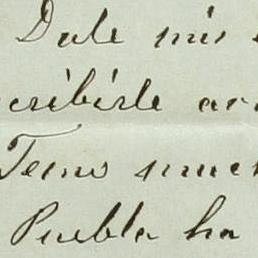 Dale mis
cribirle
Temo muc
Puebla ha